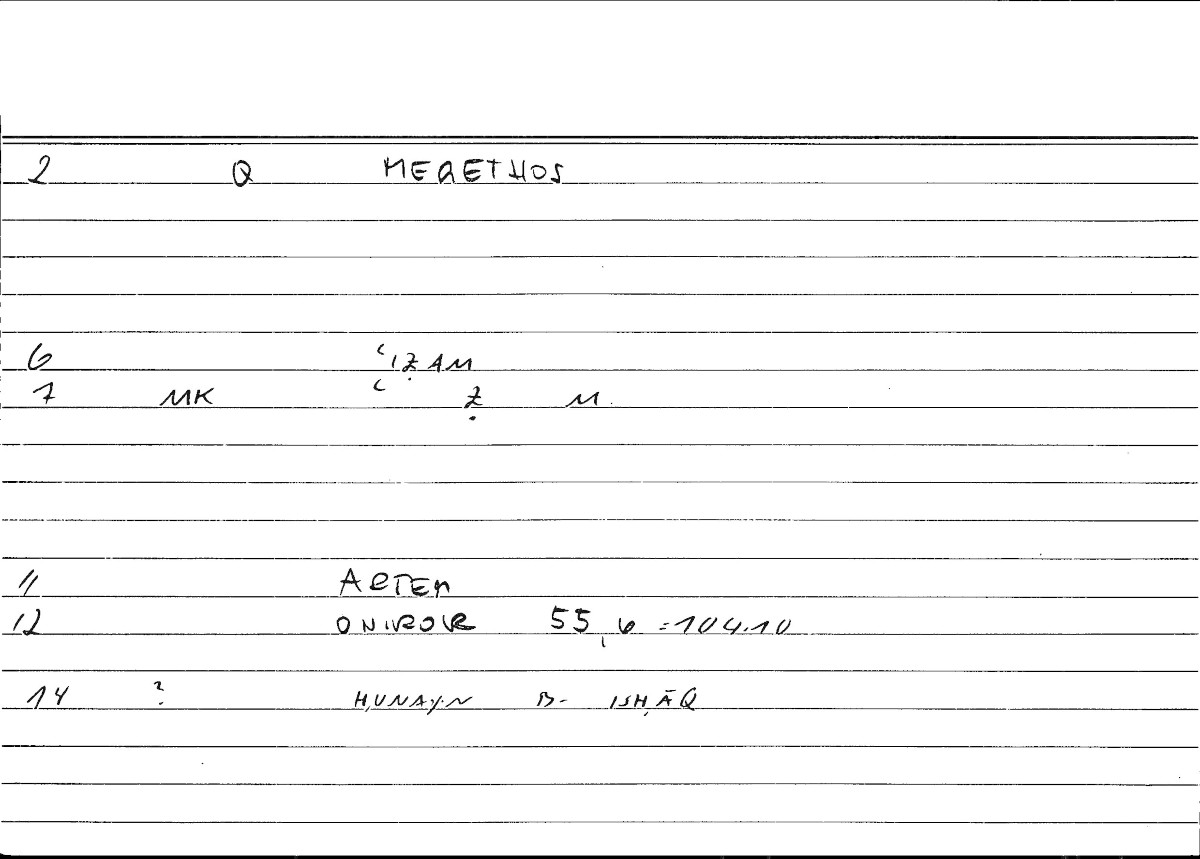 2 Q MEGETHOS
6 ʿIẒAM
7 MK ʿ Ẓ M
11 ARTEM
12 ONIROK 55,6 = 104.10
14 ? ḤUNAYN B- ISḤĀQ